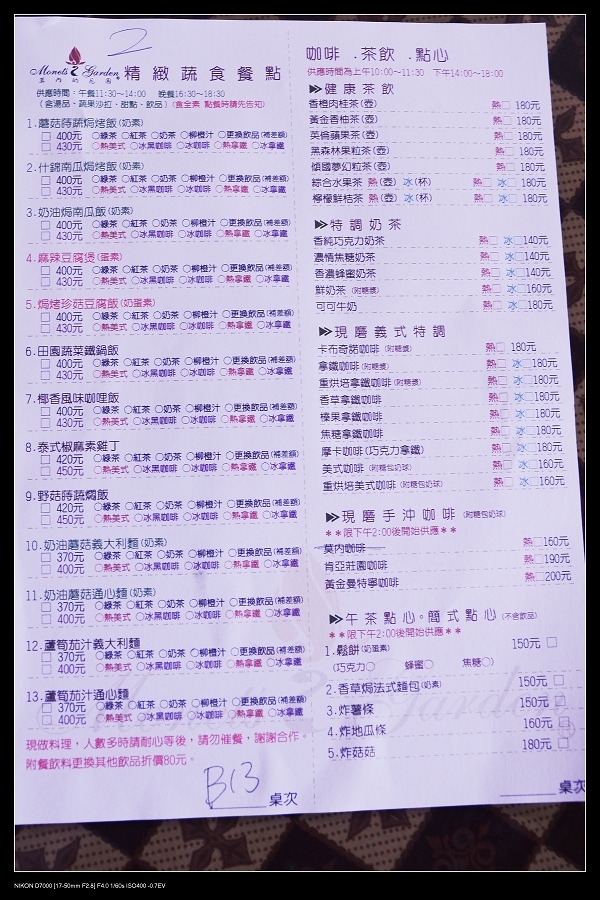 2
Monet's Garden
莫內的花園
精緻蔬食餐點
供應時間：午餐11:30~14:00 晚餐16:30~18:30
(含湯品、蔬果沙拉、甜點、飲品)(食全素 點餐時請先告知)
1.蘑菇蒔蔬焗烤飯(奶素)
□ 400元 ○綠茶 ○紅茶 ○奶茶 ○柳橙汁 ○更換飲品(補差額)
□ 430元 ○熱美式 ○冰黑咖啡 ○冰咖啡 ○熱拿鐵 ○冰拿鐵
2.什錦南瓜焗烤飯(奶素)
□ 400元 ○綠茶 ○紅茶 ○奶茶 ○柳橙汁 ○更換飲品(補差額)
□ 430元 ○熱美式 ○冰黑咖啡 ○冰咖啡 ○熱拿鐵 ○冰拿鐵
3.奶油焗南瓜飯(奶素)
□ 400元 ○綠茶 ○紅茶 ○奶茶 ○柳橙汁 ○更換飲品(補差額)
□ 430元 ○熱美式 ○冰黑咖啡 ○冰咖啡 ○熱拿鐵 ○冰拿鐵
4.麻辣豆腐煲(蛋素)
□ 400元 ○綠茶 ○紅茶 ○奶茶 ○柳橙汁 ○更換飲品(補差額)
□ 430元 ○熱美式 ○冰黑咖啡 ○冰咖啡 ○熱拿鐵 ○冰拿鐵
5.焗烤珍菇豆腐飯(奶蛋素)
□ 400元 ○綠茶 ○紅茶 ○奶茶 ○柳橙汁 ○更換飲品(補差額)
□ 430元 ○熱美式 ○冰黑咖啡 ○冰咖啡 ○熱拿鐵 ○冰拿鐵
6.田園蔬菜鐵鍋飯
□ 400元 ○綠茶 ○紅茶 ○奶茶 ○柳橙汁 ○更換飲品(補差額)
□ 430元 ○熱美式 ○冰黑咖啡 ○冰咖啡 ○熱拿鐵 ○冰拿鐵
7.椰香風味咖哩飯
□ 400元 ○綠茶 ○紅茶 ○奶茶 ○柳橙汁 ○更換飲品(補差額)
□ 430元 ○熱美式 ○冰黑咖啡 ○冰咖啡 ○熱拿鐵 ○冰拿鐵
8.泰式椒麻素雞丁
□ 420元 ○綠茶 ○紅茶 ○奶茶 ○柳橙汁 ○更換飲品(補差額)
□ 450元 ○熱美式 ○冰黑咖啡 ○冰咖啡 ○熱拿鐵 ○冰拿鐵
9.野菇蒔蔬燜飯
□ 420元 ○綠茶 ○紅茶 ○奶茶 ○柳橙汁 ○更換飲品(補差額)
□ 450元 ○熱美式 ○冰黑咖啡 ○冰咖啡 ○熱拿鐵 ○冰拿鐵
10.奶油蘑菇義大利麵(奶素)
□ 370元 ○綠茶 ○紅茶 ○奶茶 ○柳橙汁 ○更換飲品(補差額)
□ 400元 ○熱美式 ○冰黑咖啡 ○冰咖啡 ○熱拿鐵 ○冰拿鐵
11.奶油蘑菇通心麵(奶素)
□ 370元 ○綠茶 ○紅茶 ○奶茶 ○柳橙汁 ○更換飲品(補差額)
□ 400元 ○熱美式 ○冰黑咖啡 ○冰咖啡 ○熱拿鐵 ○冰拿鐵
12.蘆筍茄汁義大利麵
□ 370元 ○綠茶 ○紅茶 ○奶茶 ○柳橙汁 ○更換飲品(補差額)
□ 400元 ○熱美式 ○冰黑咖啡 ○冰咖啡 ○熱拿鐵 ○冰拿鐵
13.蘆筍茄汁通心麵
□ 370元 ○綠茶 ○紅茶 ○奶茶 ○柳橙汁 ○更換飲品(補差額)
□ 400元 ○熱美式 ○冰黑咖啡 ○冰咖啡 ○熱拿鐵 ○冰拿鐵
現做料理，人數多時請耐心等後，請勿催餐，謝謝合作。
附餐飲料更換其他飲品折價80元。
B13 桌次
咖啡．茶飲．點心
供應時間為上午10:00~11:30 下午14:00~18:00
健康茶飲
香橙肉桂茶(壺) 熱□ 180元
黃金香柚茶(壺) 熱□ 180元
英倫蘋果茶(壺) 熱□ 180元
黑森林果粒茶(壺) 熱□ 180元
傾國夢幻粒茶(壺) 熱□ 180元
綜合水果茶 熱(壺) 冰(杯) 熱□ 冰□ 180元
檸檬鮮桔茶 熱(壺) 冰(杯) 熱□ 冰□ 180元
特調奶茶
香純巧克力奶茶 熱□ 冰□140元
濃情焦糖奶茶 熱□ 冰□140元
香濃蜂蜜奶茶 熱□ 冰□140元
鮮奶茶(附糖漿) 熱□ 冰□160元
可可牛奶 熱□ 冰□180元
現磨義式特調
卡布奇諾咖啡(附糖漿) 熱□ 180元
拿鐵咖啡(附糖漿) 熱□ 冰□180元
重烘培拿鐵咖啡(附糖漿) 熱□ 冰□180元
香草拿鐵咖啡 熱□ 冰□180元
榛果拿鐵咖啡 熱□ 冰□180元
焦糖拿鐵咖啡 熱□ 冰□180元
摩卡咖啡(巧克力拿鐵) 熱□ 冰□180元
美式咖啡(附糖包奶球) 熱□ 冰□160元
重烘培美式咖啡(附糖包奶球) 熱□ 冰□160元
現磨手沖咖啡(附糖包奶球)
＊＊限下午2:00後開始供應＊＊
莫內咖啡 熱□160元
肯亞莊園咖啡 熱□190元
黃金曼特寧咖啡 熱□200元
午茶點心。簡式點心(不含飲品)
＊＊限下午2:00後開始供應＊＊
1.鬆餅(奶蛋素) 150元 □
(巧克力○ 蜂蜜○ 焦糖○)
2.香草焗法式麵包(奶素) 150元 □
3.炸薯條 150元 □
4.炸地瓜條 160元 □
5.炸菇菇 180元 □
桌次
NIKON D7000 [17-50mm F2.8] F4.0 1/60s ISO400 -0.7EV